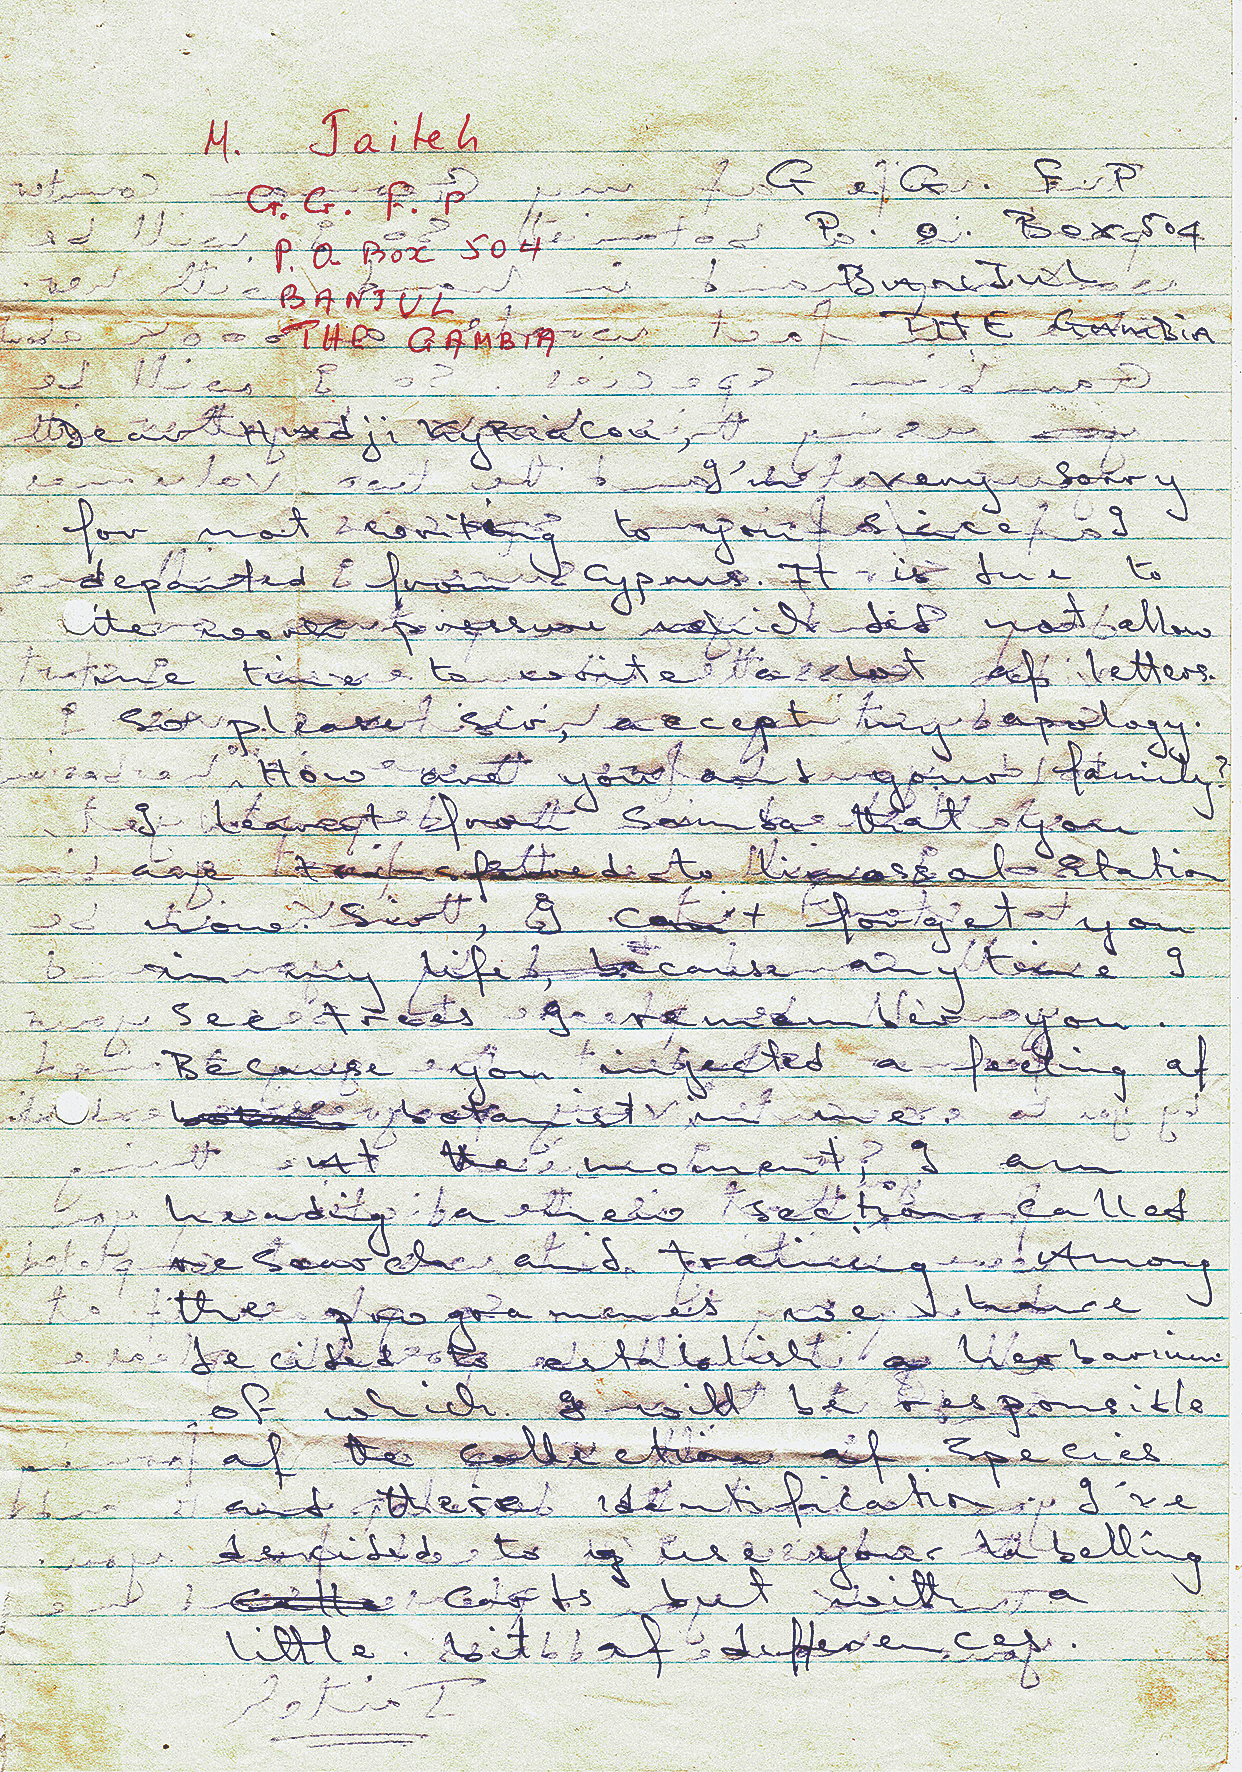 M. Jaiteh
G.G. F. P
P.O. Box 504
BANJUL
THE GAMBIA
G G. F. P
P. O. Box 504
BANJUL
THE GAMBIA
Dear Hadji Kyriacou,
I'm very sorry
for not writing to you since I
departed from Cyprus. It is due to
the work pressure which did not allow
me time to write a lot of letters.
So please sir, accept my apology.
How are you and your family?
I learnt from Samba that you
are transferred to Limassol Station
now. Sir, I can't forget you
in my life, because any time I
see trees I remember you.
Because you injected a feeling of
botanist in me.
At the moment, I am
heading a section called
research and training. Among
the programmes we have
decided to establish a Herbarium
of which I will be responsible
of the collection of species
and there identification. I've
decided to use your labelling
cards but with a
little bit of differences.